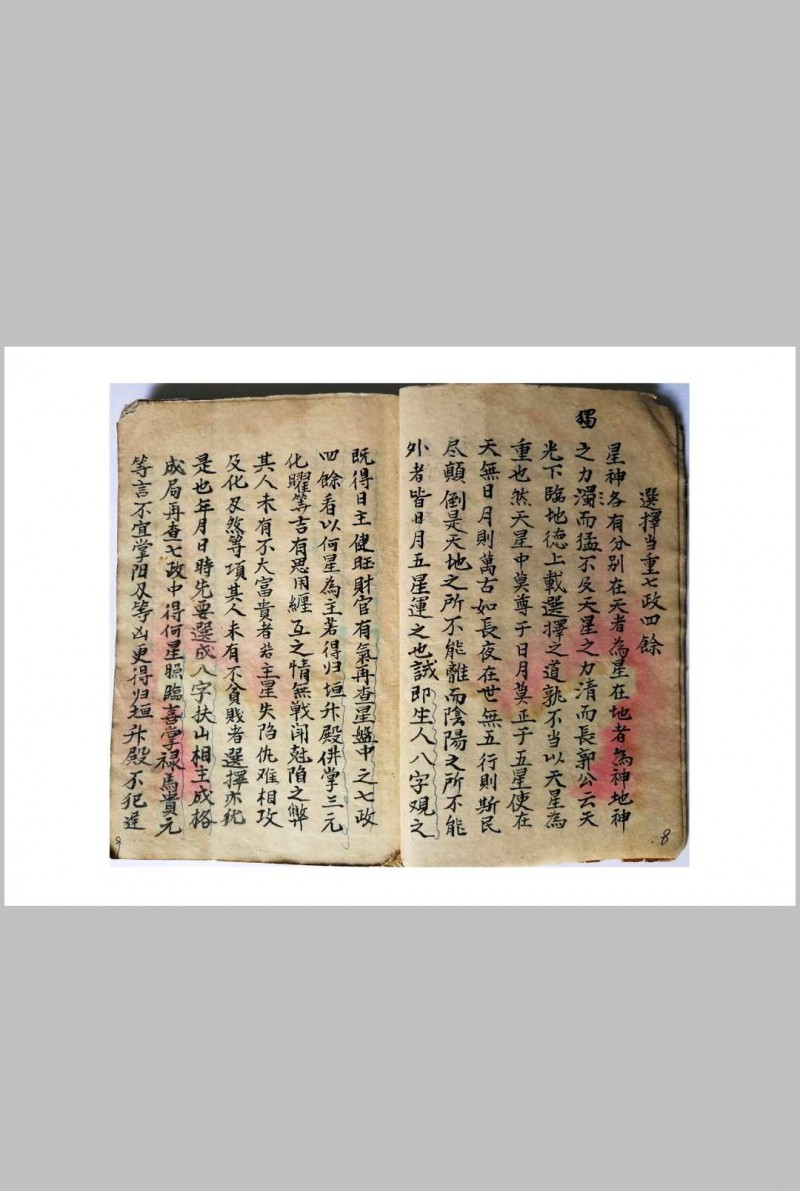 獨
選擇当重七政四餘
星神各有分别在天者為星在地者為神地神
之力濁而猛不及天星之力清而長郭公云天
光下臨地德上載選擇之道孰不当以天星為
重也然天星中莫尊于日月莫正于五星使在
天無日月則萬古如長夜在世無五行則斯民
尽顛倒是天地之所不能離而陰陽之所不能
外者皆日月五星運之也誠即生人八字观之
既得日主健旺財官有氣再查星盤中之七政
四餘看以何星為主若得归垣升殿併掌三元
化曜等吉有恩用纏互之情無戰鬥尅陷之弊
其人未有不大富貴者若主星失陷仇难相攻
及化及煞等項其人未有不貧賤者選擇亦犹
是也年月日時先要選成八字扶山相主成格
成局再查七政中得何星照臨喜掌禄馬貴元
等言不宜掌阳刃等凶更得归垣升殿不犯逆
8
9